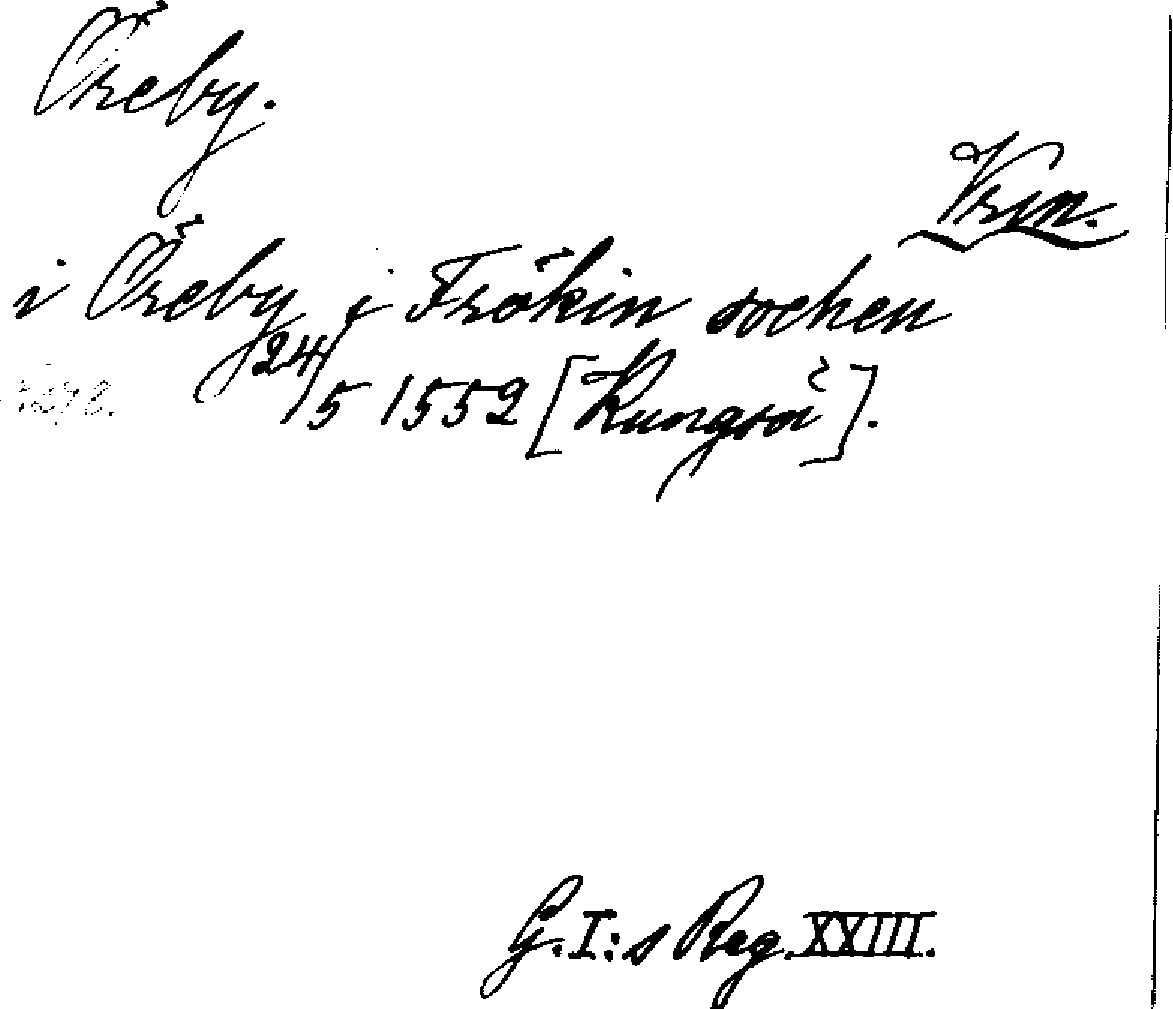 Öreby.
Vrm.
i Öreby i Frökin sochen
24/5 1552 [Kungså].
G. I:s Reg. XXIII.